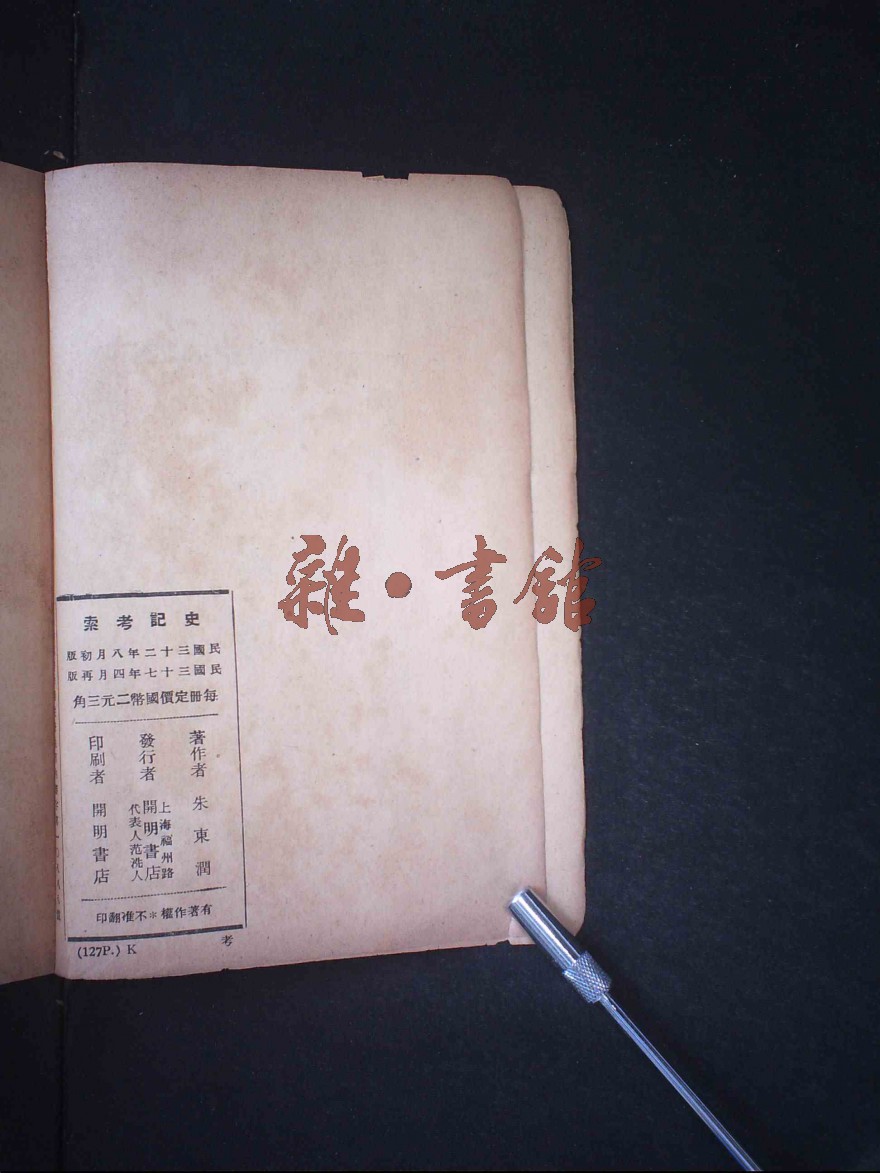 雜·書館
史記考索
民國三十二年八月初版
民國三十七年四月再版
每冊定價國幣二元三角
著作者 朱東潤
發行者 上海福州路
開明書店
代表人范洗人
印刷者 開明書店
有著作權*不准翻印
(127P.) K
考